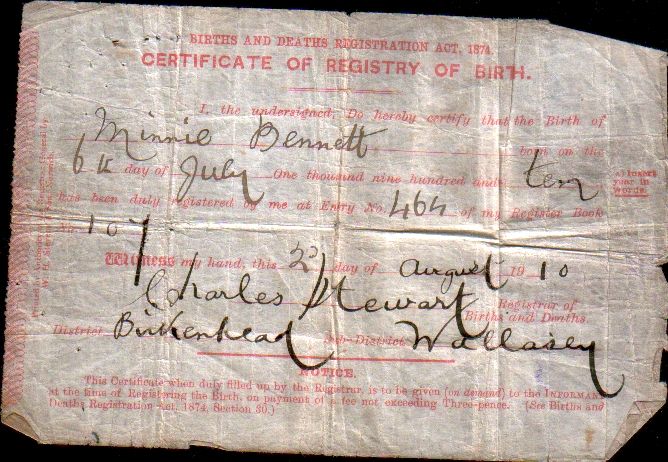 BIRTHS AND DEATHS REGISTRATION ACT, 1874.
CERTIFICATE OF REGISTRY OF BIRTH.
I, the undersigned, Do hereby certify that the Birth of
Minnie Bennett born on the
6th day of July One thousand nine hundred and ten
has been duly registered by me at Entry No. 464 of my Register Book
No. 107
Witness my hand, this 2 day of August 1910
Charles Stewart Registrar of
Births and Deaths.
District Birkenhead Sub-District Wallasey
NOTICE.
This Certificate when duly filled up by the Registrar, is to be given (on demand) to the INFORMANT
at the time of Registering the Birth, on payment of a fee not exceeding Three-pence. (See Births and
Deaths Registration Act, 1874, Section 30.)
Insert
year in
words.